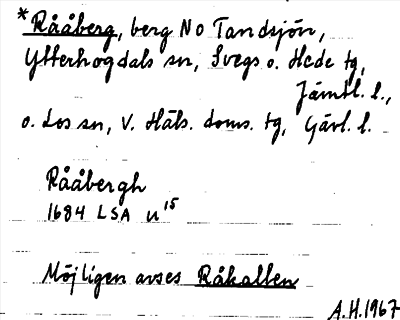 *Rååberg, berg NO Tandsjön,
Ytterhogdals sn, Svegs o. Hede tg,
Jämtl. l.,
o. Los sn, V. Häls. doms. tg, Gävl. l.
Rååbergh
1684 LSA U15
Möjligen avses Råkallen
A.H.1967